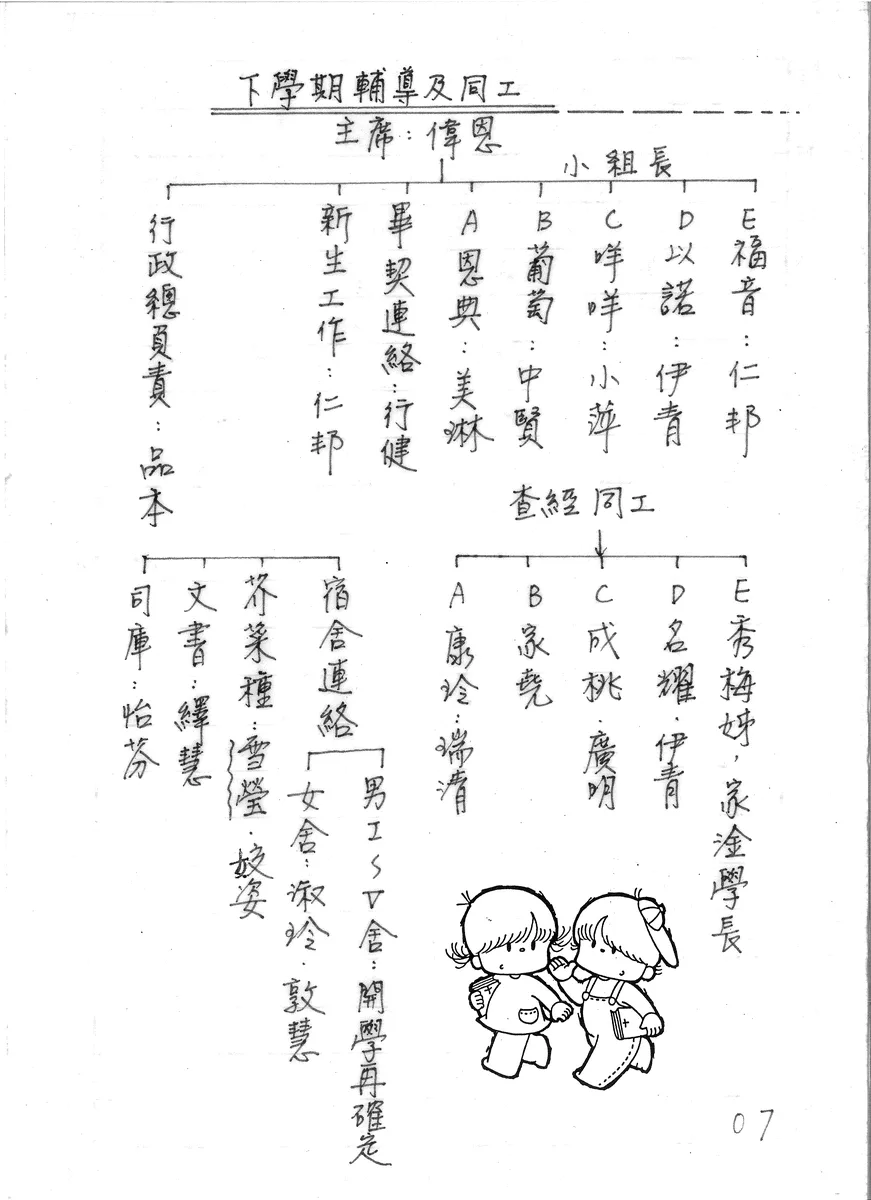 下學期輔導及同工
主席：偉恩
小組長
行政總負責：品本
新生工作：仁邦
畢契連絡：行健
A 恩典：美琳
B 葡萄：中賢
C 咩咩：小萍
D 以諾：伊青
E 福音：仁邦
司庫：怡芬
文書：繹慧
芥菜種：雪瑩．姣姿
宿舍連絡
女舍：淑玲．敦慧
男I～V舍：開學再確定
查經同工
A 康玲．瑞清
B 家堯
C 成桃．廣明
D 名耀．伊青
E 秀梅姊，家淦學長
07